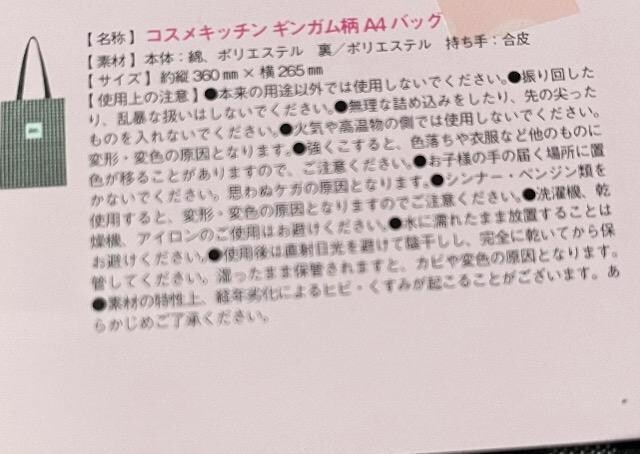 【名称】 コスメキッチン ギンガム柄 A4 バッグ
【素材】 本体:綿、ポリエステル 裏/ポリエステル 持ち手:合皮
【サイズ】 約縦360㎜×横265㎜
【使用上の注意】●本来の用途以外では使用しないでください。●振り回した
り、乱暴な扱いはしないでください。●無理な詰め込みをしたり、先の尖った
ものを入れないでください。●火気や高温物の側では使用しないでください。
変形・変色の原因となります。●強くこすると、色落ちや衣服など他のものに
色が移ることがありますので、ご注意ください。●お子様の手の届く場所に置
かないでください。思わぬケガの原因となります。●シンナー・ベンジン類を
使用すると、変形・変色の原因となりますのでご注意ください。●洗濯機、乾
燥機、アイロンのご使用はお避けください。●水に濡れたまま放置することは
お避けください。●使用後は直射日光を避けて陰干しし、完全に乾いてから保
管してください。湿ったまま保管されますと、カビや変色の原因となります。
●素材の特性上、経年劣化によるヒビ・くすみが起こることがございます。あ
らかじめご了承ください。